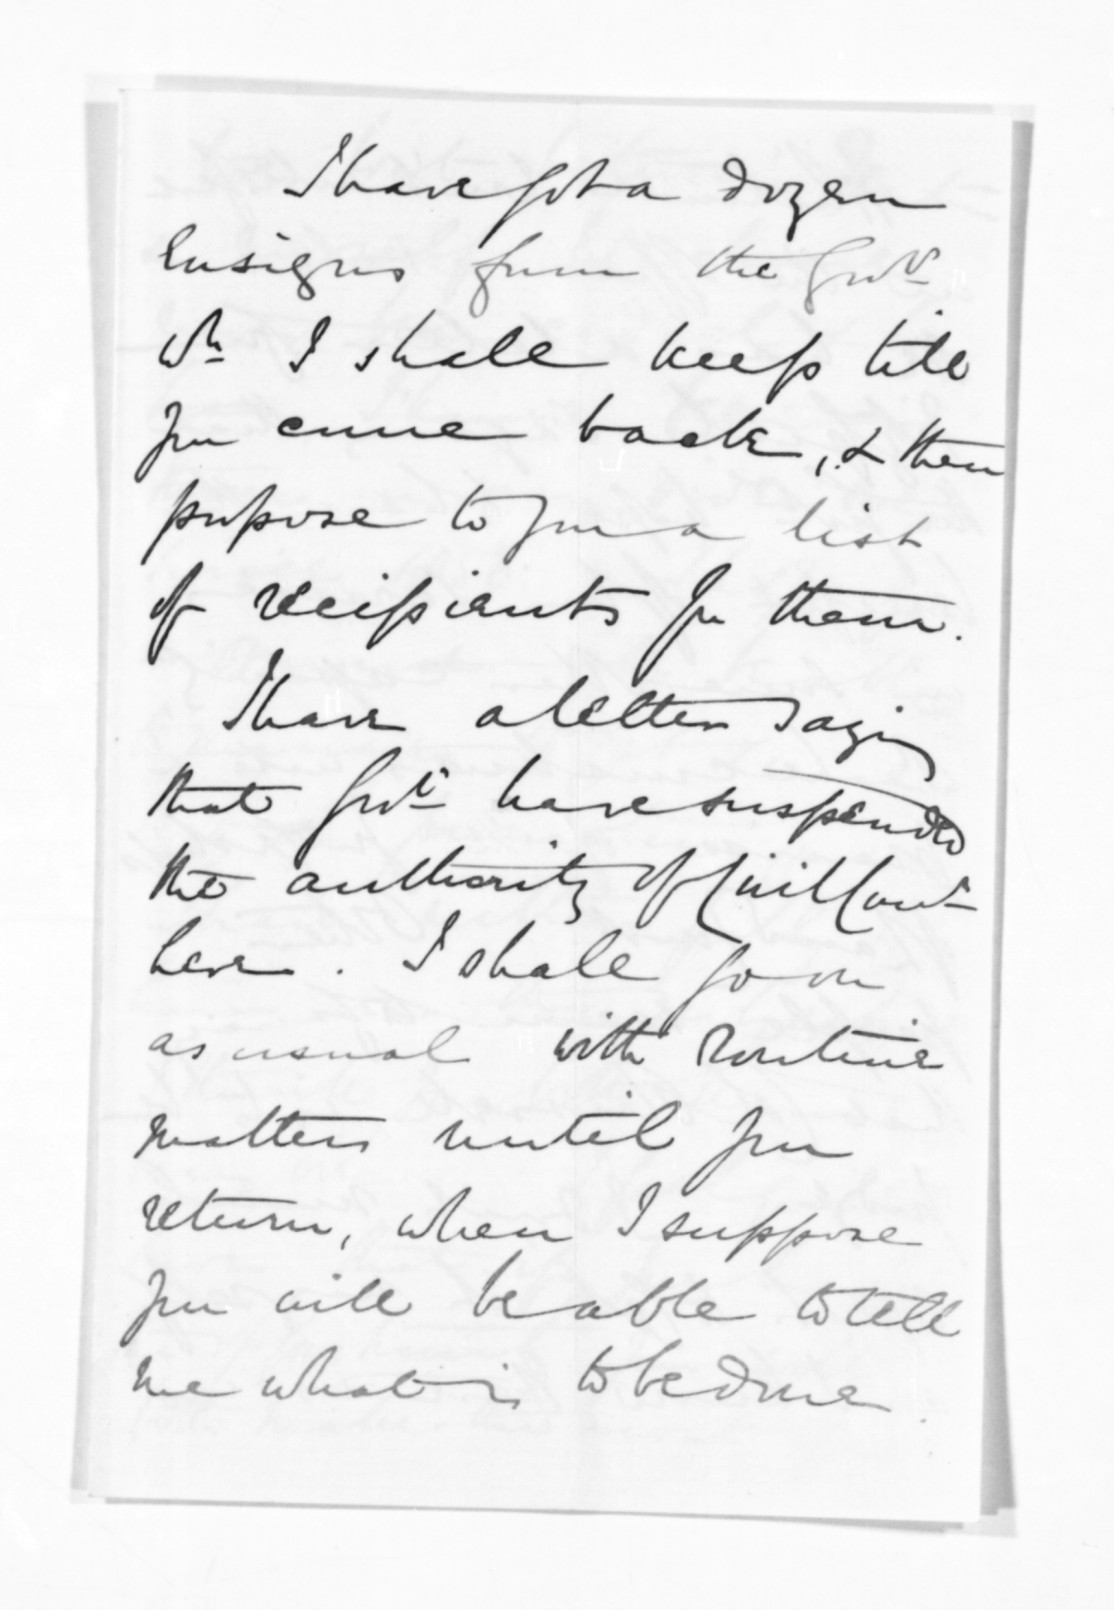 I have got a dozen
Ensigns from the Govt
wh I shall keep till
you come back, & then
propose to you a list
of recipients for them.
I have a letter saying
that Govt have suspended
the authority of Civil Comr
here. I shall go on
as usual with routine
matters until you
return, when I suppose
you will be able to tell
me what is to be done.